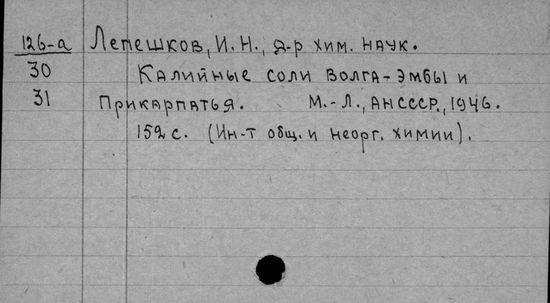 126-а Лепешков, И. Н., д-р хим. наук.
30 Калийные соли Волга-Эмбы и
31 Прикарпатья. М.-Л., АНСССР, 1946.
152 с. (Ин-т общ. и неорг. химии).